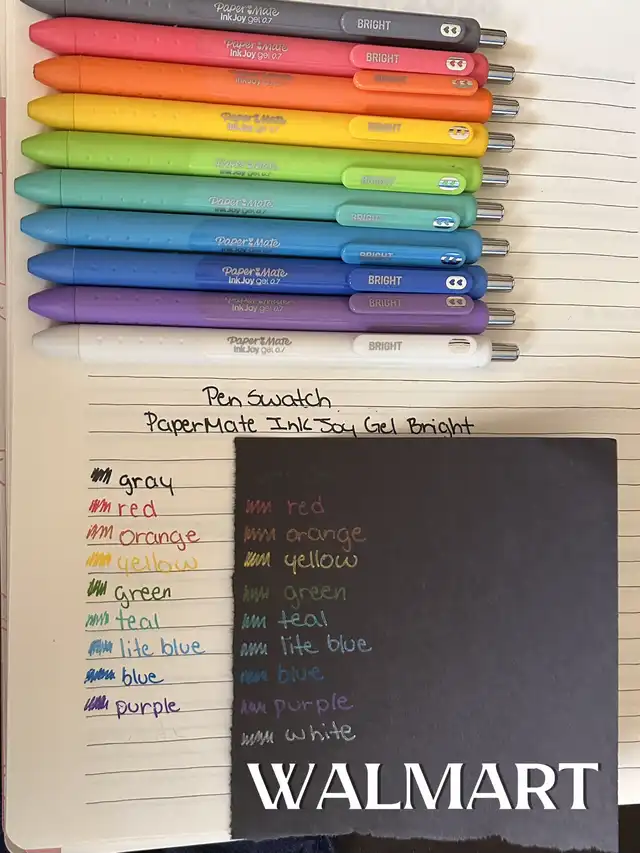 Paper Mate
InkJoy gel 0.7 BRIGHT
Paper Mate
InkJoy gel 0.7 BRIGHT
Paper Mate
InkJoy gel 0.7 BRIGHT
Paper Mate
InkJoy gel 0.7 BRIGHT
Paper Mate
InkJoy gel 0.7 BRIGHT
Paper Mate
InkJoy gel 0.7 BRIGHT
Paper Mate
InkJoy gel 0.7 BRIGHT
Paper Mate
InkJoy gel 0.7 BRIGHT
BRIGHT
Paper Mate
InkJoy gel 0.7 BRIGHT
Pen Swatch
PaperMate Ink Joy Gel Bright
gray
red
orange
yellow
green
teal
lite blue
blue
purple
red
orange
yellow
green
teal
lite blue
blue
purple
white
WALMART